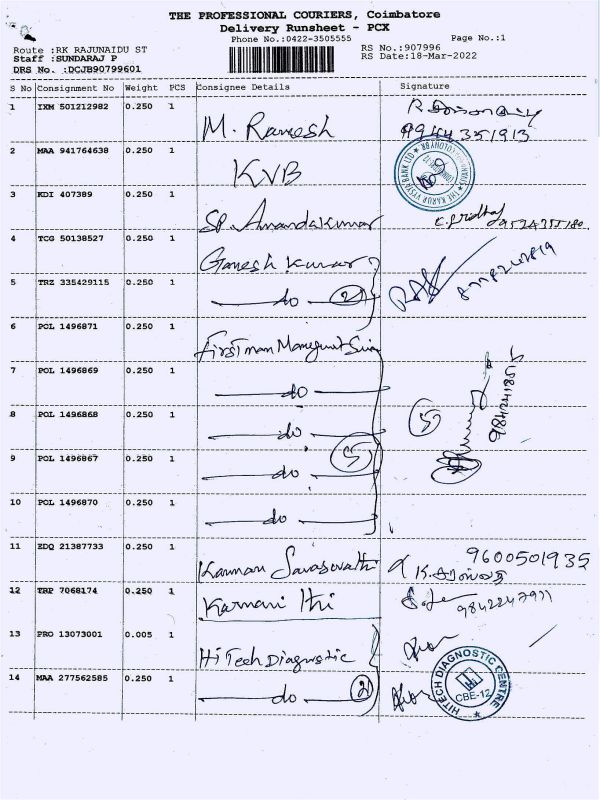 THE PROFESSIONAL COURIERS, Coimbatore
Delivery Runsheet - PCX
Phone No.:0422-3505555
Page No.:1
Route :RK RAJUNAIDU ST
RS No.:907996
Staff :SUNDARAJ P
RS Date:18-Mar-2022
DRS No. :DCJB90799601
S No Consignment No Weight PCS Consignee Details Signature
1 IXM 501212982 0.250 1 M. Ramesh
9944351913
2 MAA 941764638 0.250 1 KVB
THE KARUR VYSYA BANK LTD
3 KDI 407389 0.250 1 SP. Anandakumar
4 TCG 50138527 0.250 1 Ganesh Kumar
5 TRZ 335429115 0.250 1 do 2
6 POL 1496871 0.250 1 Firstman
7 POL 1496869 0.250 1 do
8 POL 1496868 0.250 1 do 5
9 POL 1496867 0.250 1 do 5
10 POL 1496870 0.250 1 do
11 EDQ 21387733 0.250 1 Kannan Sarasvathi 9600501935
12 TRP 7068174 0.250 1 Karnani
13 PRO 13073001 0.005 1 Hi Tech Diagnostic
14 MAA 277562585 0.250 1 do 2
HITECH DIAGNOSTIC CENTRE
CBE-12